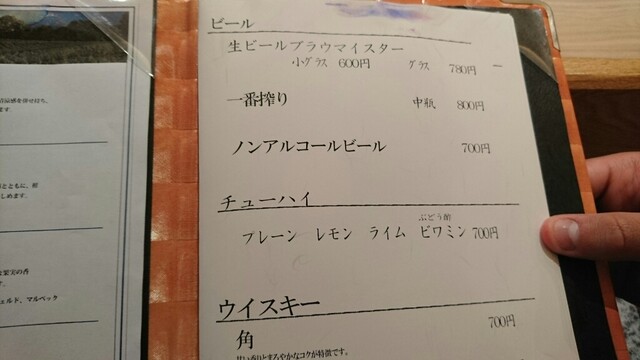 ビール
生ビールブラウマイスター
小グラス 600円 グラス 780円
一番搾り 中瓶 800円
ノンアルコールビール 700円
チューハイ
ぶどう酢
プレーン レモン ライム ビワミン 700円
ウイスキー
700円
角
甘い香りとまろやかなコクが特徴です。
しめます。
な果実の香
ェルド、マルベック